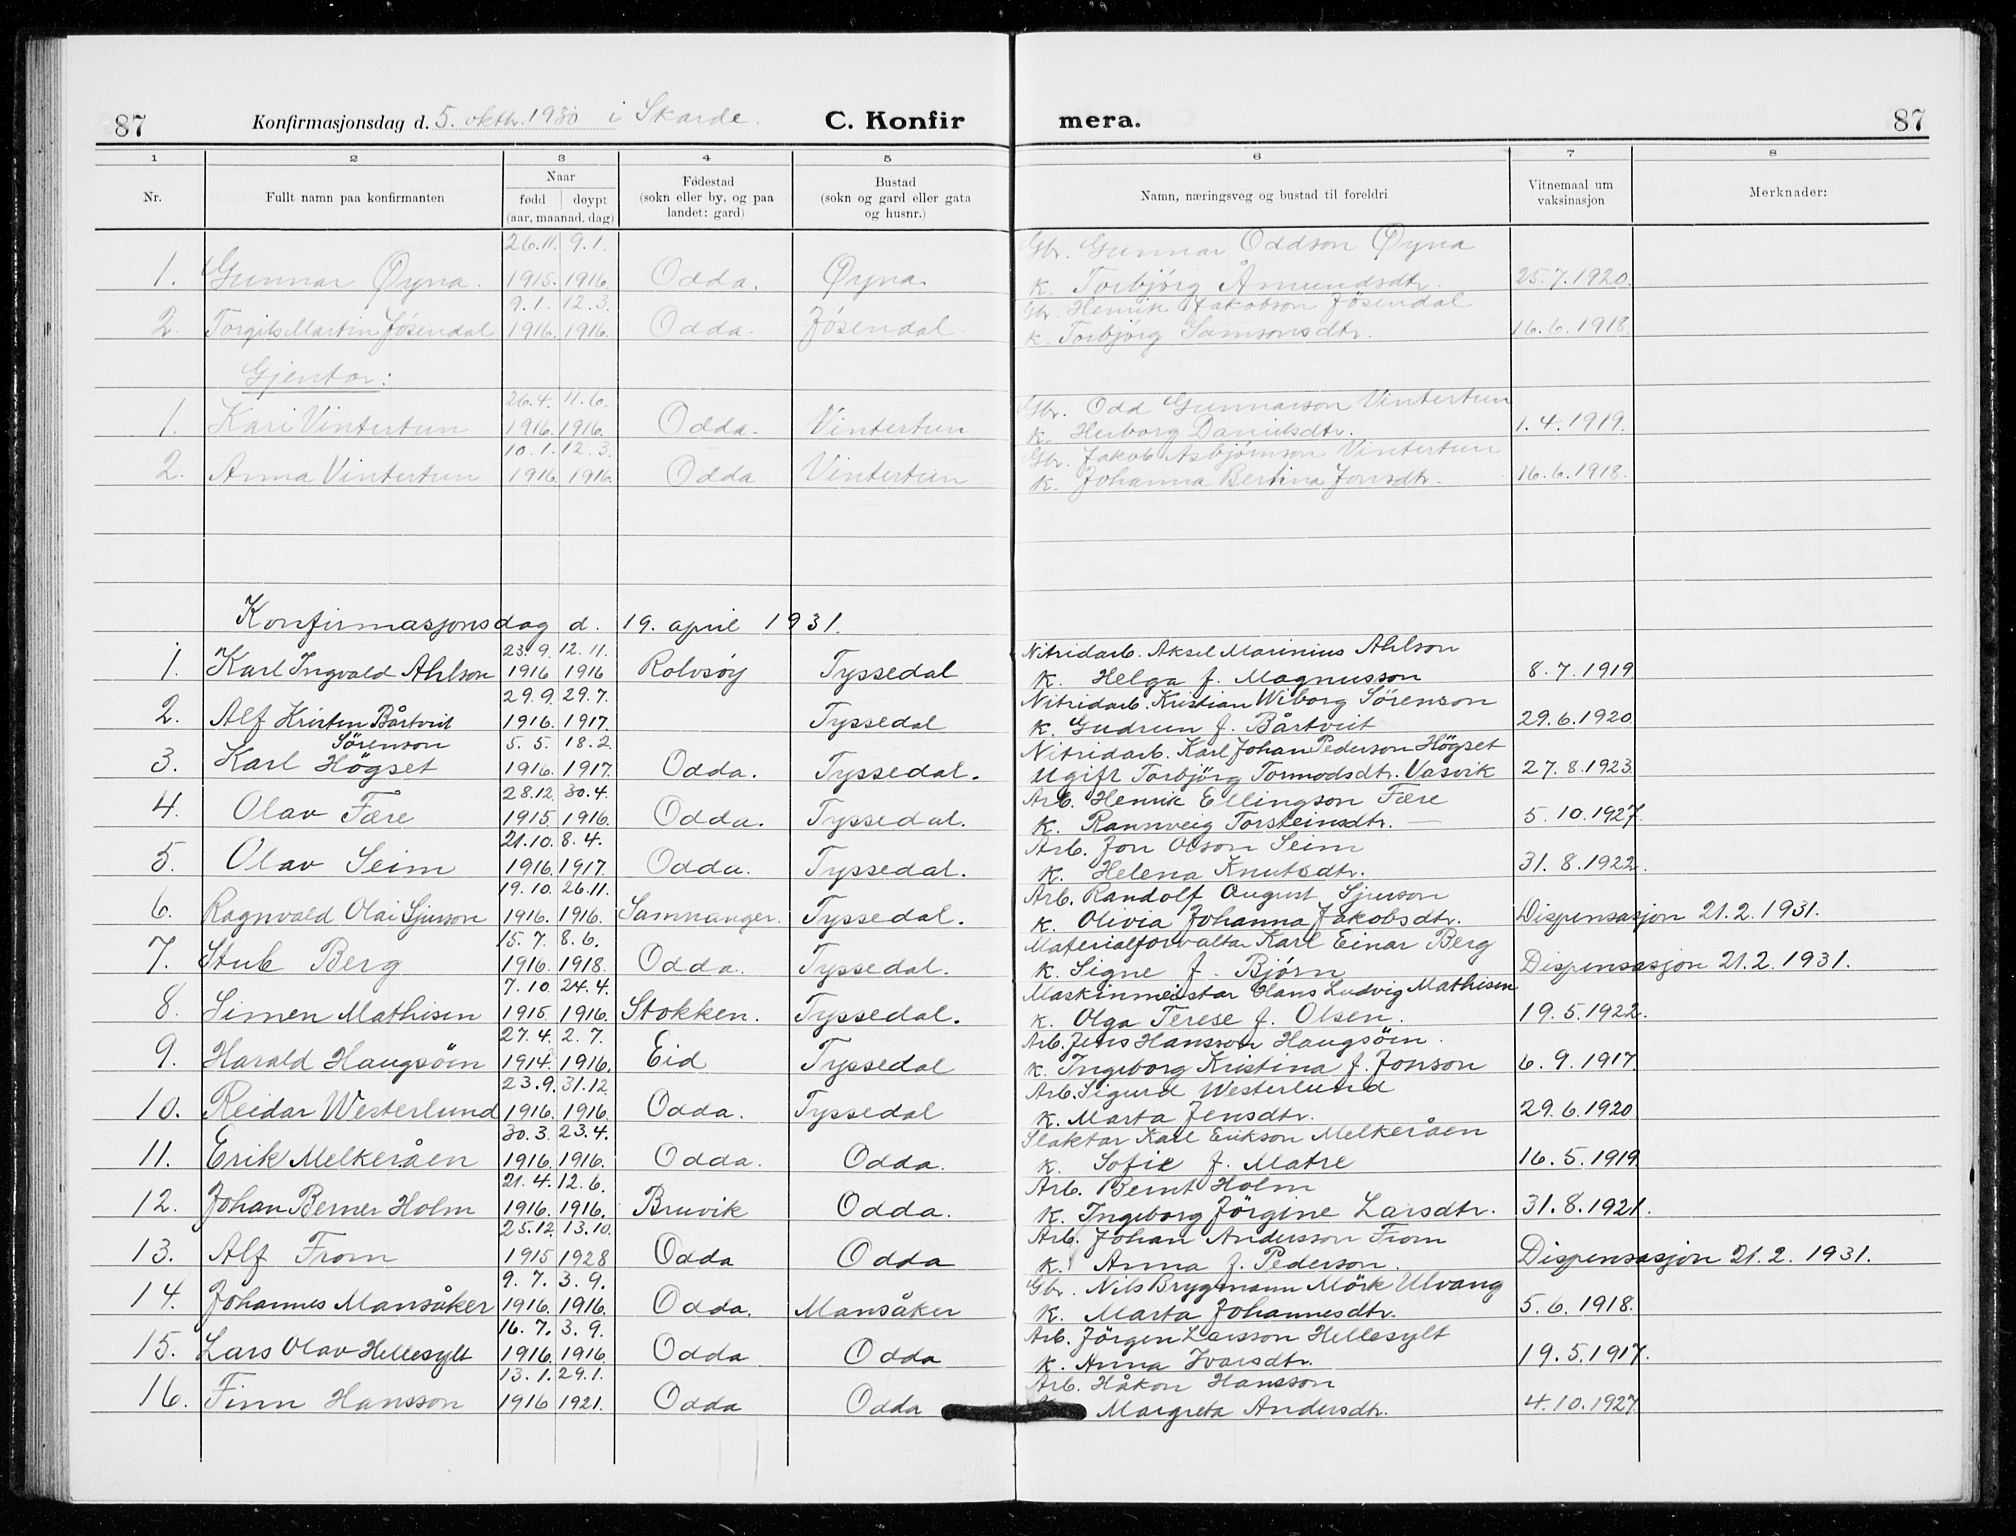 87 Konfirmasjonsdag d. 5. oktbr. 1930 i Skarde. C. Konfir mera. 87
1 2 3 4 5 6 7 8
Nr. Fullt namn paa konfirmanten Naar Fødestad Bustad Namn, næringsveg og bustad til foreldri Vitnemaal um Merknader:
født døypt (sokn eller by, og paa (sokn og gard eller gata vaksinasjon
(aar, maanad, dag) landet: gard) og husnr.)
26.11. 9.1. Gbr. Gunnar Oddson Øyna
1. Gunnar Øyna. 1915. 1916. Odda. Øyna. K. Torbjörg Åmundsdtr. 25.7.1920.
9.1. 12.3. Gbr. Henrik Jakobson Jösendal
2. Torgils Martin Jösendal 1916. 1916. Odda. Jösendal. K. Torbjörg Samsonsdtr. 16.6.1918.
Gjentor:
26.4. 11.6. Gbr. Odd Gunnarson Vintertun
1. Kari Vintertun 1916. 1916. Odda. Vintertun K. Herborg Danielsdtr. 1.4.1919.
10.1. 12.3. Gbr. Jakob Asbjörnson Vintertun
2. Anna Vintertun 1916. 1916. Odda Vintertun K. Johanna Bertina Jonsdtr. 16.6.1918.
Konfirmasjonsdag d. 19. april 1931.
23.9. 12.11. Nitridarb. Aksel Marinius Ahlson
1. Karl Ingvald Ahlson 1916 1916 Rolvsöy Tyssedal K. Helga f. Magnusson 8.7.1919
29.9. 29.7. Nitridarb. Kristian Wiborg Sörenson
2. Alf Kristen Bårtveit 1916. 1917. Tyssedal K. Gudrun f. Bårtveit 29.6.1920
Sörenson 5.5. 18.2. Nitridarb. Karl Johan Pederson Högset
3. Karl Högset 1916. 1917. Odda. Tyssedal. Ugift Torbjörg Tormodsdtr. Vasvik 27.8.1923
28.12. 30.4. Arb. Henrik Ellingson Fære
4. Olav Fære 1915 1916. Odda. Tyssedal. K. Rannveig Torsteinsdtr. 5.10.1927.
21.10. 8.4. Arb. Jon Olson Seim
5. Olav Seim 1916. 1917. Odda. Tyssedal. K. Helena Knutsdtr. 31.8.1922.
19.10. 26.11. Arb. Randolf August Sjurson
6. Ragnvald Olai Sjurson 1916. 1916. Samnanger. Tyssedal. K. Olivia Johanna Jakobsdtr. Dispensasjon 21.2.1931.
15.7. 8.6. Materialforvaltar Karl Einar Berg
7. Stub Berg 1916. 1918. Odda. Tyssedal. K. Signe f. Bjørn Dispensasjon 21.2.1931.
7.10. 24.4. Maskinmeistar Hans Ludvig Mathisen
8. Simen Mathisen 1915 1916. Stokken. Tyssedal. K. Olga Terese f. Olsen. 19.5.1922.
27.4. 2.7. Arb. Jens Hansson Haugsöin
9. Harald Haugsöin 1914. 1916. Eid Tyssedal K. Ingeborg Kristina f. Jonson 6.9.1917
23.9. 31.12. Arb. Sigurd Westerlund
10. Reidar Westerlund 1916. 1916. Odda. Tyssedal K. Marta Jensdtr. 29.6.1920
30.3. 23.4. Slaktar Karl Erikson Melkeråen
11. Erik Melkeråen 1916. 1916. Odda. Odda. K. Sofie f. Matre 16.5.1919
21.4. 12.6. Arb. Bernt Holm
12. Johan Berner Holm 1916. 1916. Bruvik Odda. K. Ingeborg Jörgine Larsdtr. 31.8.1921.
25.12. 13.10. Arb. Johan Andersson From
13. Alf From 1915 1928 Odda Odda K. Anna f. Pederson. Dispensasjon 21.2.1931.
9.7. 3.9. Gbr. Nils Brygmann Mörk Ulvang
14. Johannes Mansåker 1916. 1916. Odda. Mansåker K. Marta Johannesdtr. 5.6.1918.
16.7. 3.9. Arb. Jörgen Larsson Hellesylt
15. Lars Olav Hellesylt 1916. 1916. Odda Odda K. Anna Ivarsdtr. 19.5.1917.
13.1. 29.1. Arb. Håkon Hansson
16. Finn Hansson 1916 1921. Odda Odda Margreta Andersdtr. 4.10.1927.